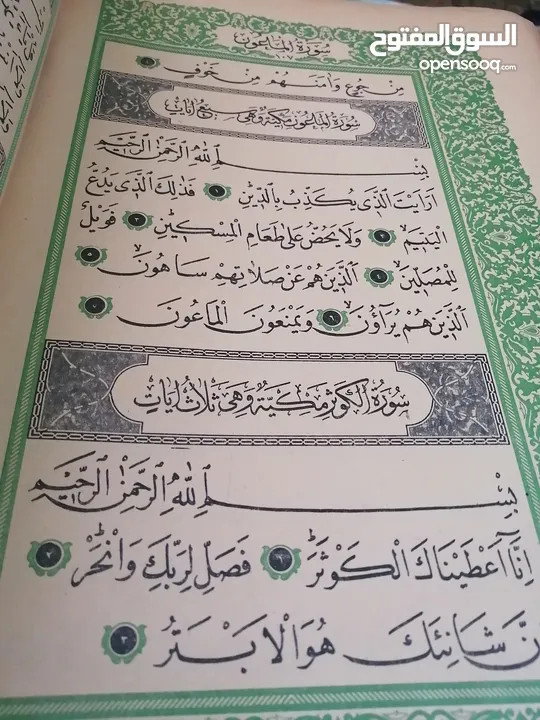 السوق المفتوح
opensooq.com
سورة الماعون
١٠٧
مِنْ جُوعٍ وَاٰمَنَهُمْ مِنْ خَوْفٍ
سورة الماعون مكية وهى سبع ايات
بِسْمِ اللّٰهِ الرَّحْمٰنِ الرَّحِيمِ
اَرَاَيْتَ الَّذٖى يُكَذِّبُ بِالدّٖينِ ١ فَذٰلِكَ الَّذٖى يَدُعُّ
الْيَتٖيمَ ٢ وَلَا يَحُضُّ عَلٰى طَعَامِ الْمِسْكٖينِ ٣ فَوَيْلٌ
لِلْمُصَلّٖينَ ٤ اَلَّذٖينَ هُمْ عَنْ صَلَاتِهِمْ سَاهُونَ ٥
اَلَّذٖينَ هُمْ يُرَاؤُنَ ٦ وَيَمْنَعُونَ الْمَاعُونَ ٧
سورة الكوثر مكية وهى ثلاث ايات
بِسْمِ اللّٰهِ الرَّحْمٰنِ الرَّحِيمِ
اِنَّا اَعْطَيْنَاكَ الْكَوْثَرَ ١ فَصَلِّ لِرَبِّكَ وَانْحَرْ ٢
شَانِئَكَ هُوَ الْاَبْتَرُ ٣